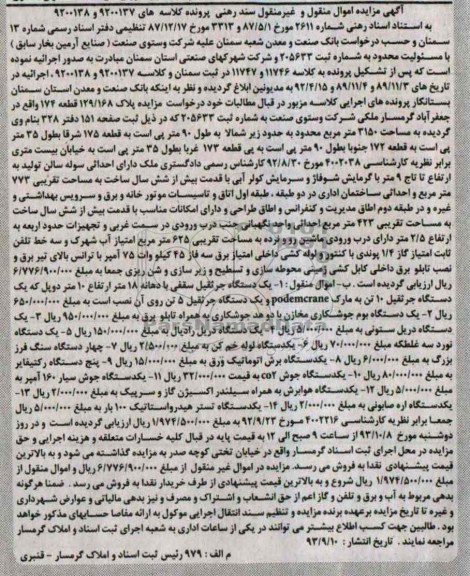 آگهی مزایده اموال منقول و غیرمنقول سند رهنی پرونده کلاسه های ۹۲۰۰۱۳۷ و ۹۲۰۰۱۳۸
به استناد اسناد رهنی شماره ۲۶۱۱ مورخ ۸۷/۵/۱ و ۳۳۱۳ مورخ ۸۷/۱۲/۱۷ تنظیمی دفتر اسناد رسمی شماره ۱۳
سمنان و حسب درخواست بانک صنعت و معدن شعبه سمنان علیه شرکت وستوی صنعت ( صنایع آرمین بخار سابق )
با مسئولیت محدود به شماره ثبت ۲۰۵۶۳۳ و شرکت شهرکهای صنعتی استان سمنان مبادرت به صدور اجرائیه نموده
است که پس از تشکیل پرونده به کلاسه ۱۱۷۴۶ و ۱۱۷۴۷ در ثبت سمنان و کلاسه ۹۲۰۰۱۳۷ و ۹۲۰۰۱۳۸ ، اجرائیه در
تاریخ های ۸۹/۱۱/۳ و ۸۹/۱۱/۴ و ۹۲/۴/۱۵ به مدیونین ابلاغ گردیده و نظر به اینکه بانک صنعت و معدن استان سمنان
بستانکار پرونده های اجرایی کلاسه مزبور در قبال مطالبات خود درخواست مزایده پلاک ۱۲۹/۱۶۸ قطعه ۱۷۴ واقع در
جعفرآباد گرمسار ملکی شرکت وستوی صنعت به شماره ثبت ۲۰۵۶۳۳ که در ذیل ثبت صفحه ۱۵۱ دفتر ۳۲۸ بنام وی
گردیده به مساحت ۳۱۵۰ متر مربع محدود به حدود زیر شمالا به طول ۹۰ متر پی است به قطعه ۱۷۵ شرقا بطول ۳۵ متر
پی است به قطعه ۱۷۲ جنوبا بطول ۹۰ متر پی است به پی قطعه ۱۷۳ غربا بطول ۳۵ متر پی است به خیابان بیست متری
برابر نظریه کارشناسی ۴۰۰۲۰۳۸ مورخ ۹۲/۸/۲۰ کارشناس رسمی دادگستری ملک دارای احداثی سوله سالن تولید به
ارتفاع تا تاج ۹ متر با گرمایش شوفاژ و سرمایش کولر آبی با قدمت بیش از شش سال ساخت به مساحت تقریبی ۷۷۳
متر مربع و احداثی ساختمان اداری در دو طبقه ، طبقه اول اتاق و تاسیسات موتور خانه و برق و سرویس بهداشتی و
غیره و در طبقه دوم اطاق مدیریت و کنفرانس و اطاق طراحی و دارای امکانات مناسب با قدمت بیش از شش سال ساخت
به مساحت تقریبی ۴۲۳ متر مربع احداثی واحد نگهبانی جنب درب ورودی در سمت غربی و تجهیزات حدود اربعه به
ارتفاع ۲/۵ متر دارای درب ورودی ماشین رو و نرده به مساحت تقریبی ۶۲۵ متر مربع امتیاز آب شهرک و سه خط تلفن
ثابت امتیاز گاز ۱/۴ پوندی با کنتور و لوله کشی داخلی امتیاز برق سه فاز ۴۵ کیلو وات ۷۵ آمپر با ترانس بالای تیر برق و
نصب تابلو برق داخلی کابل کشی زمینی محوطه سازی و تسطیح و زیر سازی و شن ریزی جمعا به مبلغ ۶/۷۷۶/۹۰۰/۰۰۰
ریال ارزیابی گردیده است . ب- اموال منقول : ۱- یک دستگاه جرثقیل سقفی با دهانه ۱۸ متر ارتفاع ۱۰ متر دوپل که یک
دستگاه جرثقیل ۱۰ تن به مارک podemcrane و یک دستگاه جرثقیل ۵ تن روی آن نصب است به مبلغ ۶۵۰/۰۰۰/۰۰۰
ریال ۲- یک دستگاه بوم جوشکاری مخازن با دو هد جوشکاری به همراه تابلو برق به مبلغ ۹۵۰/۰۰۰/۰۰۰ ریال ۳- یک
دستگاه دریل ستونی به مبلغ ۵/۰۰۰/۰۰۰ ریال ۴- یک دستگاه دریل رادیال به مبلغ ۱۵۰/۰۰۰/۰۰۰ ریال ۵- یک دستگاه
نورد سه غلطکه مبلغ ۷۰/۰۰۰/۰۰۰ ریال ۶- یکدستگاه لوله خم کن به مبلغ ۲/۵۰۰/۰۰۰ ریال ۷- چهار دستگاه سنگ فرز
بزرگ به مبلغ ۶/۰۰۰/۰۰۰ ریال ۸- یکدستگاه برش اتوماتیک ورق به مبلغ ۱۵/۰۰۰/۰۰۰ ریال ۹- پنج دستگاه رکتیفایر
به مبلغ ۸۰/۰۰۰/۰۰۰ ریال ۱۰- یکدستگاه جوش co۲ به قیمت ۳۲/۰۰۰/۰۰۰ ریال ۱۱- یکدستگاه جوش سیار ۱۶۰ آمپر به
مبلغ ۵/۰۰۰/۰۰۰ ریال ۱۲- یکدستگاه هوابرش به همراه سیلندر اکسیژن گاز و سرپیک به مبلغ ۲/۰۰۰/۰۰۰ ریال ۱۳-
یکدستگاه اره صابونی به مبلغ ۲/۰۰۰/۰۰۰ ریال ۱۴- یکدستگاه تستر هیدرواستاتیک ۱۰۰ بار به مبلغ ۵/۰۰۰/۰۰۰ ریال
جمعا برابر نظریه کارشناسی ۴۰۰۲۲۱۶ مورخ ۹۲/۹/۲۳ به مبلغ ۱/۹۷۴/۵۰۰/۰۰۰ ریال ارزیابی گردیده است و در روز
دوشنبه مورخ ۹۳/۱۰/۸ از ساعت ۹ صبح الی ۱۲ به قیمت پایه در قبال کلیه خسارات متعلقه و هزینه اجرایی و حق
مزایده در محل اجرای ثبت اسناد گرمسار واقع در خیابان تختی کوچه صدر به مزایده گذاشته می شود و به بالاترین
قیمت پیشنهادی نقدا به فروش می رسد. مزایده در اموال غیر منقول از مبلغ ۶/۷۷۶/۹۰۰/۰۰۰ ریال و اموال منقول از
۱/۹۷۴/۵۰۰/۰۰۰ ریال شروع و به بالاترین قیمت پیشنهادی از طرف خریدار نقدا به فروش می رسد . ضمنا هرگونه
بدهی مربوط به آب و برق و تلفن و گاز اعم از حق انشعاب و اشتراک و مصرف و نیز بدهی مالیاتی و عوارض شهرداری
و غیره تا تاریخ مزایده برعهده برنده مزایده و تنظیم سند انتقال اجرایی موکول به ارائه مفاصا حسابهای مذکور خواهد
بود . طالبین جهت کسب اطلاع بیشتر می توانند در یکی از ساعات اداری به شعبه اجرای ثبت اسناد و املاک گرمسار
مراجعه نمایند . تاریخ انتشار : ۹۳/۹/۱۰
م الف : ۹۷۹ رئیس ثبت اسناد و املاک گرمسار - قنبری